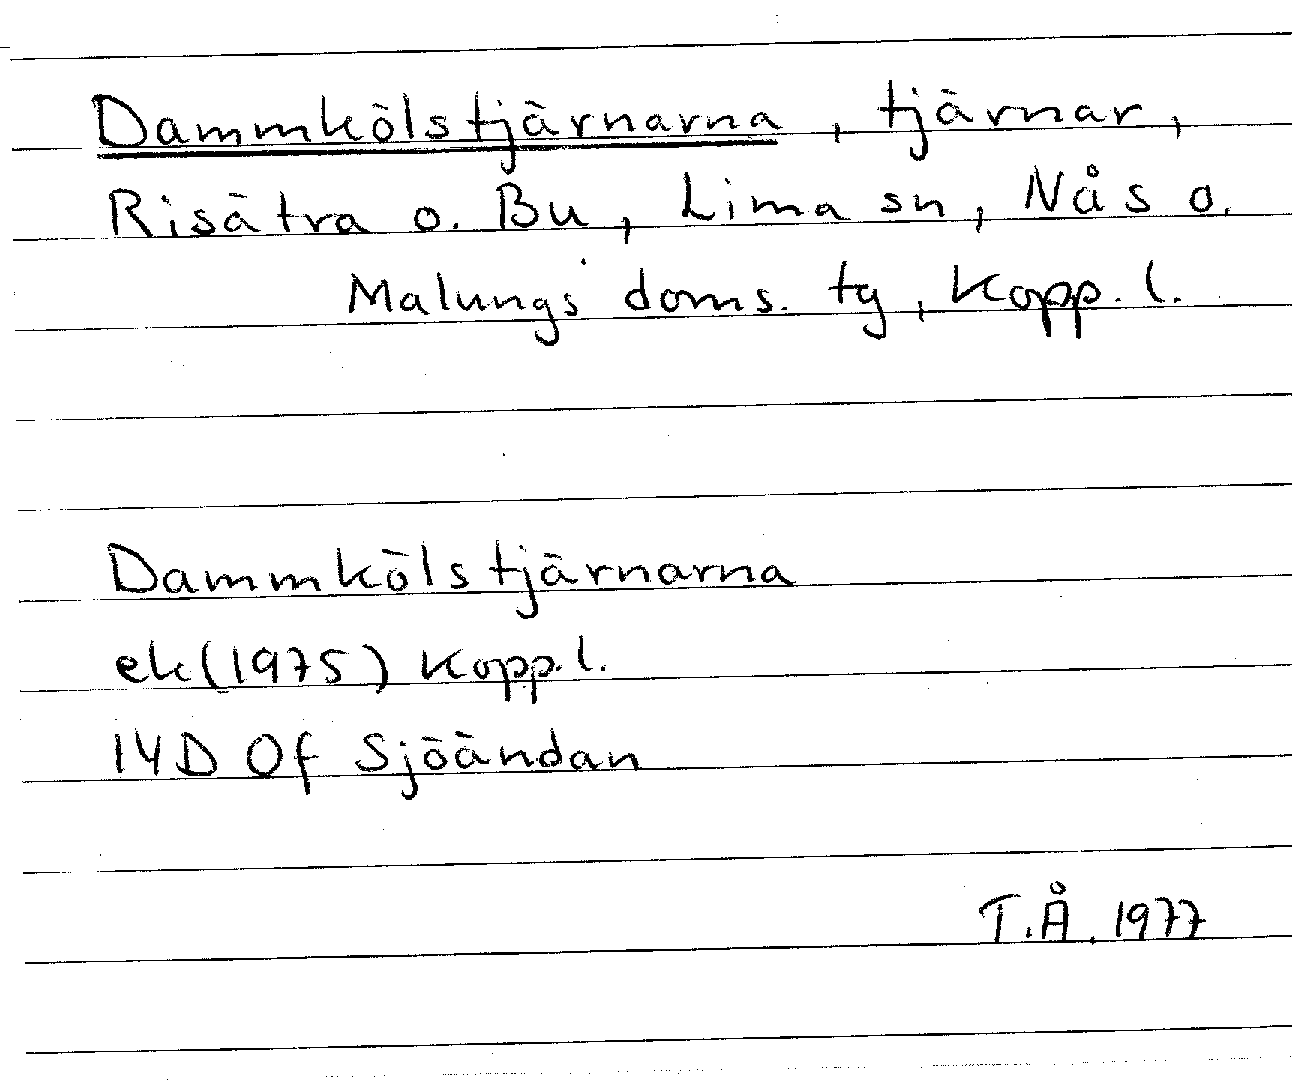 Dammkölstjärnarna, tjärnar,
Risätra o. Bu, Lima sn, Nås o.
Malungs doms. tg, Kopp. l.
Dammkölstjärnarna
ek (1975) Kopp. l.
14D 0f Sjöändan
T.Å. 1977